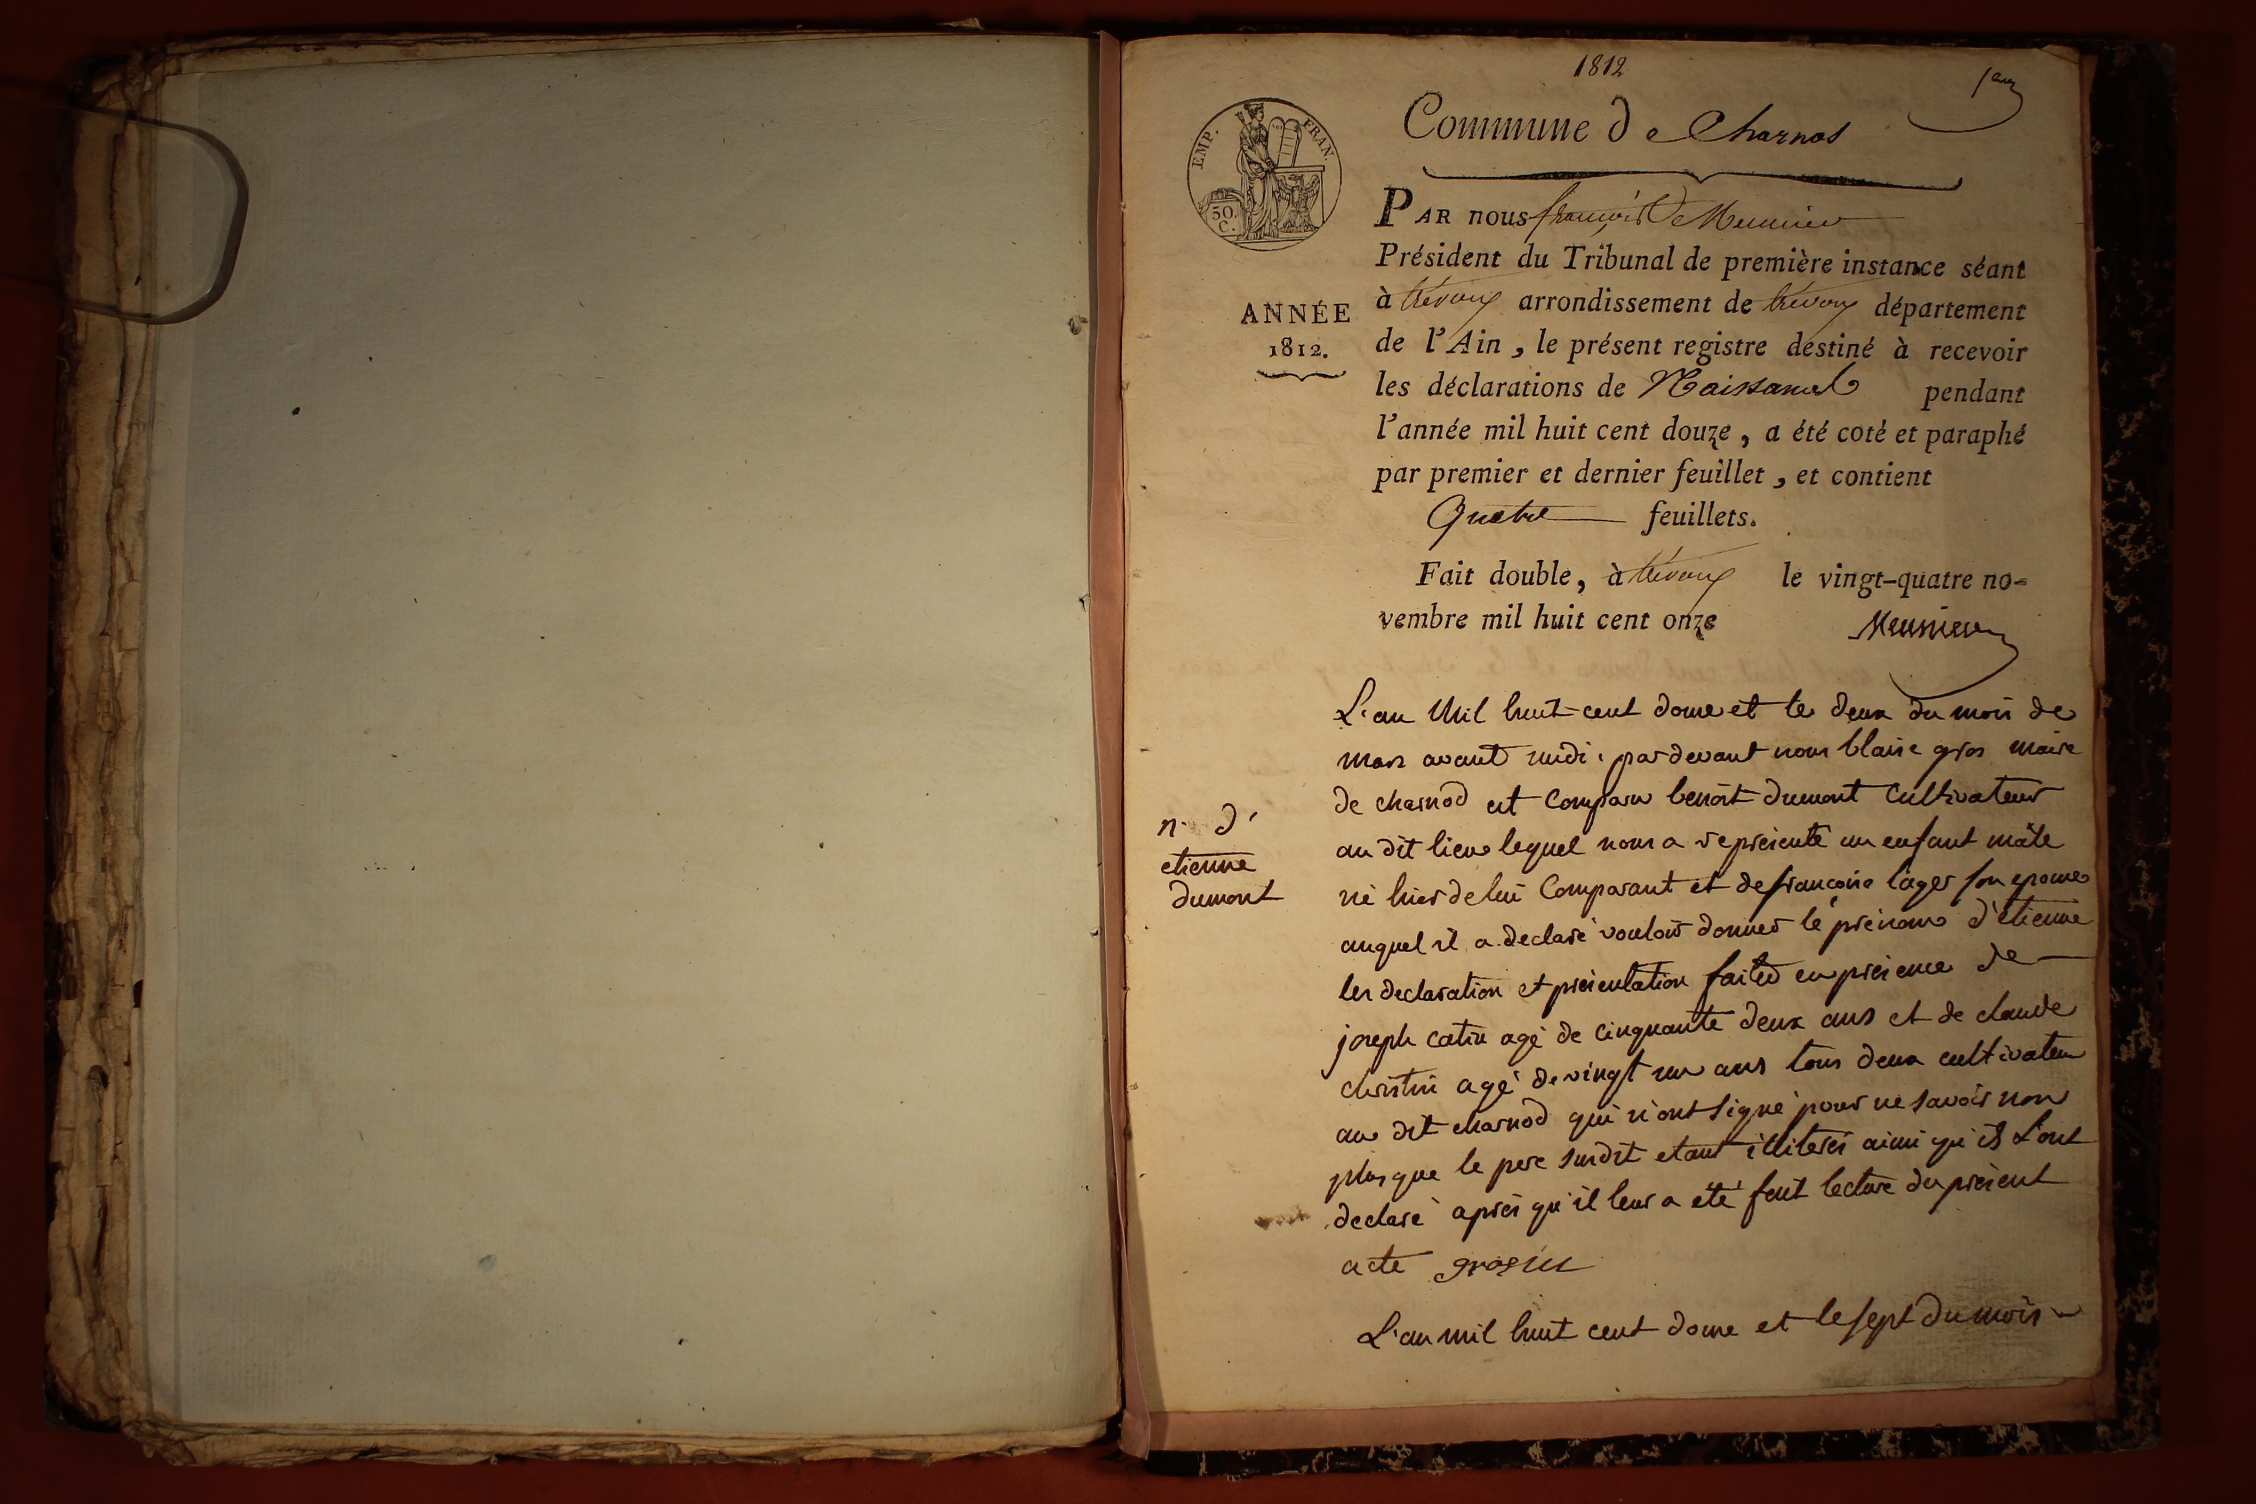 1812
Commune de Charnod
EMP. FRAN.
50. C.
PAR nous françois Meunier
Président du Tribunal de première instance séant
à trevoux arrondissement de trevoux département
ANNÉE
1812.
de l'Ain, le présent registre destiné à recevoir
les déclarations de Naissances pendant
l'année mil huit cent douze, a été coté et paraphé
par premier et dernier feuillet, et contient
Quatre feuillets.
Fait double, à trevoux le vingt-quatre no-
vembre mil huit cent onze Meunier
L'an Mil huit cent douze et le deux du mois de
mars avant midi. pardevant nous blaise gros maire
de charnod est comparu benoit dumont cultivateur
au dit lieu lequel nous a représenté un enfant mâle
n. d'
etienne
dumont
né hier de lui Comparant et de françoise lager son epouse
auquel il a declaré vouloir donner le prénom d'étienne
les declaration et présentation faites en présence de
joseph catin agé de cinquante deux ans et de claude
christin agé de vingt un ans tous deux cultivateur
au dit charnod qui n'ont signé pour ne savoir non
plus que le pere susdit etant illiterés ainsi qu'ils l'ont
declaré après qu'il leur a été fait lecture du présent
acte
L'an mil huit cent douze et le sept du mois